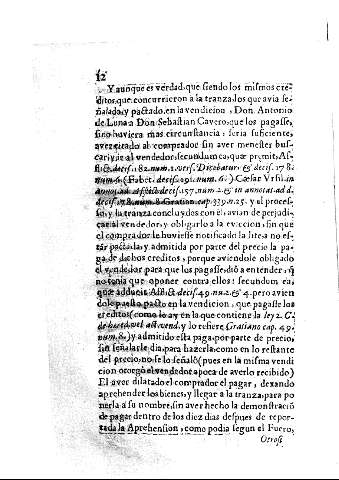 12
Y aunque es verdad, que siendo los mismos cre-
ditos, que concurrieron a la tranza los que avia se-
ñalado, y pactado, en la vendicion, Don Antonio
de Luna a Don Sebastian Cavero, que los pagasse,
sino huviera mas circunstancia, seria suficiente,
aver citado al comprador sin aver menester bus-
car, y ir al vendedor, secundum ea, quæ præmit, Af-
flict. decis. 182. num. 1. vers. Dicebatur & decis. 178
num. 6. (Fabet. decis. 291. num. 6.) Cæsar Ursil. in
ad Afflict. decis. 157. num. 2. & in annotat. ad d.
decis. 178. num. 8. Gratian. cap. 339. n. 25. y el proces-
so, y la tranza concluydos con el avian de perjudi-
car al vendedor, y obligarlo a la eviccion, sin que
el comprador le huviesse notificado la lite a no es-
tar pactada, y admitida por parte del precio la pa-
ga de dichos creditos, porque aviendole obligado
el vendedor para que los pagasse, diò a entender, q̃
no tenia que oponer contra ellos: secundum ea,
quæ adducit Afflict. decis. 49. nu. 2. & 4. pero avien-
dole puesto pacto en la vendicion, que pagasse los
creditos (como lo ay en la que contiene la ley 2. C.
de hæred. vel act. vend. y lo refiere Gratiano cap. 49.
num. 8.) y admitido esta paga, por parte de precio,
sin señalarle dia, para hazerla, como en lo restante
del precio, no se lo señalò (pues en la misma vendi-
cion otorgò el vendedor apoca de averlo recibido)
El aver dilatado el comprador el pagar, dexando
aprehender los bienes, y llegar a la tranza, para po-
nerla a su nombre, sin aver hecho la demonstraciõ
de pagar dentro de los diez dias despues de repor-
tada la Aprehension, como podia segun el Fuero,
Otrosi